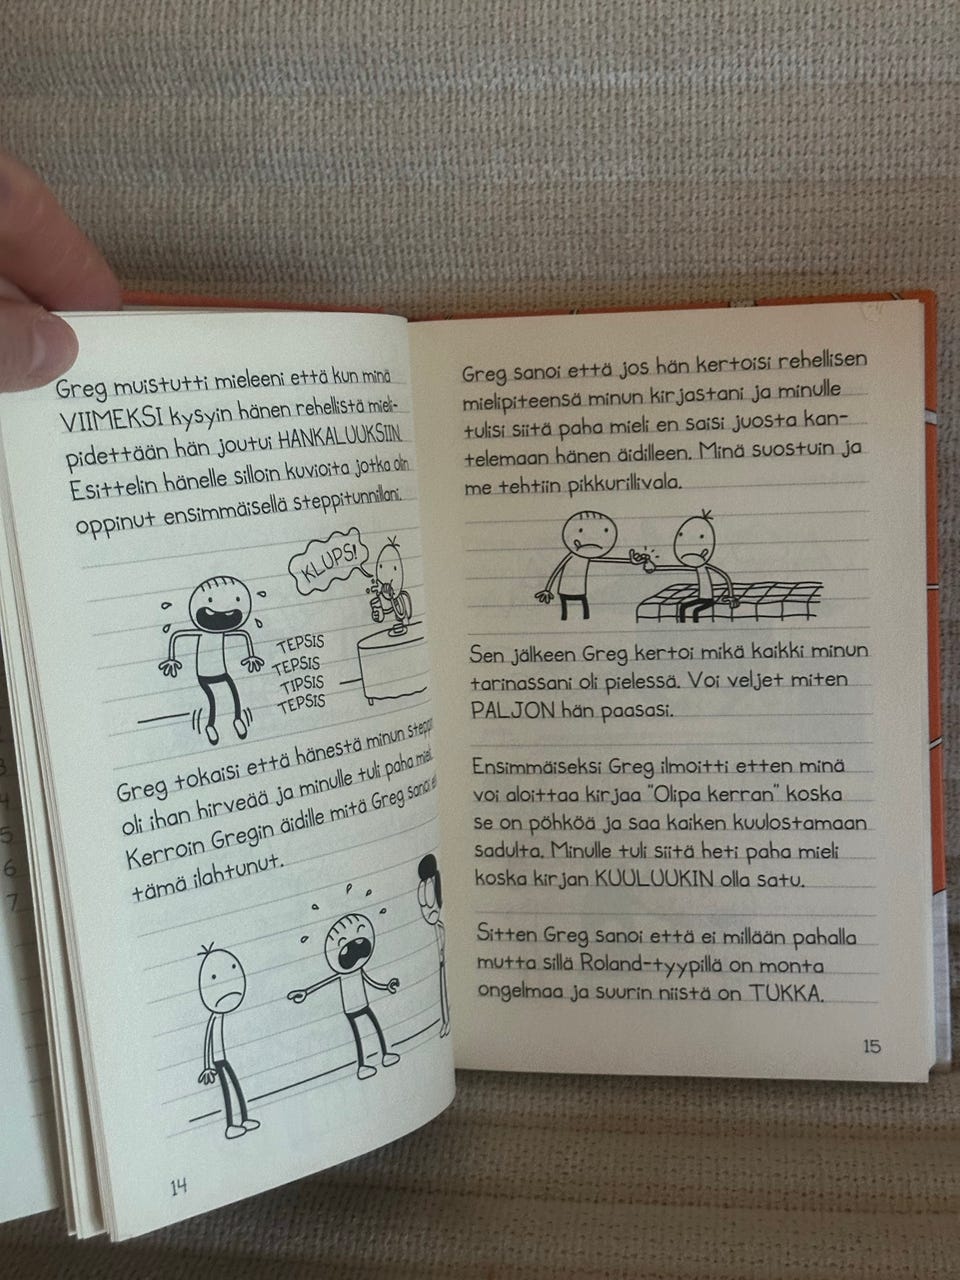 Greg muistutti mieleeni että kun minä
VIIMEKSI kysyin hänen rehellistä mieli-
pidettään hän joutui HANKALUUKSIIN.
Esittelin hänelle silloin kuvioita jotka olin
oppinut ensimmäisellä steppitunnillani.
KLUPS!
TEPSIS
TEPSIS
TIPSIS
TEPSIS
Greg tokaisi että hänestä minun
oli ihan hirveää ja minulle tuli paha mieli.
Kerroin Gregin äidille mitä Greg sanoi
tämä ilahtunut.
14
Greg sanoi että jos hän kertoisi rehellisen
mielipiteensä minun kirjastani ja minulle
tulisi siitä paha mieli en saisi juosta kan-
telemaan hänen äidilleen. Minä suostuin ja
me tehtiin pikkurillivala.
Sen jälkeen Greg kertoi mikä kaikki minun
tarinassani oli pielessä. Voi veljet miten
PALJON hän paasasi.
Ensimmäiseksi Greg ilmoitti etten minä
voi aloittaa kirjaa "Olipa kerran" koska
se on pöhköä ja saa kaiken kuulostamaan
sadulta. Minulle tuli siitä heti paha mieli
koska kirjan KUULUUKIN olla satu.
Sitten Greg sanoi että ei millään pahalla
mutta sillä Roland-tyypillä on monta
ongelmaa ja suurin niistä on TUKKA.
15
4
5
6
7